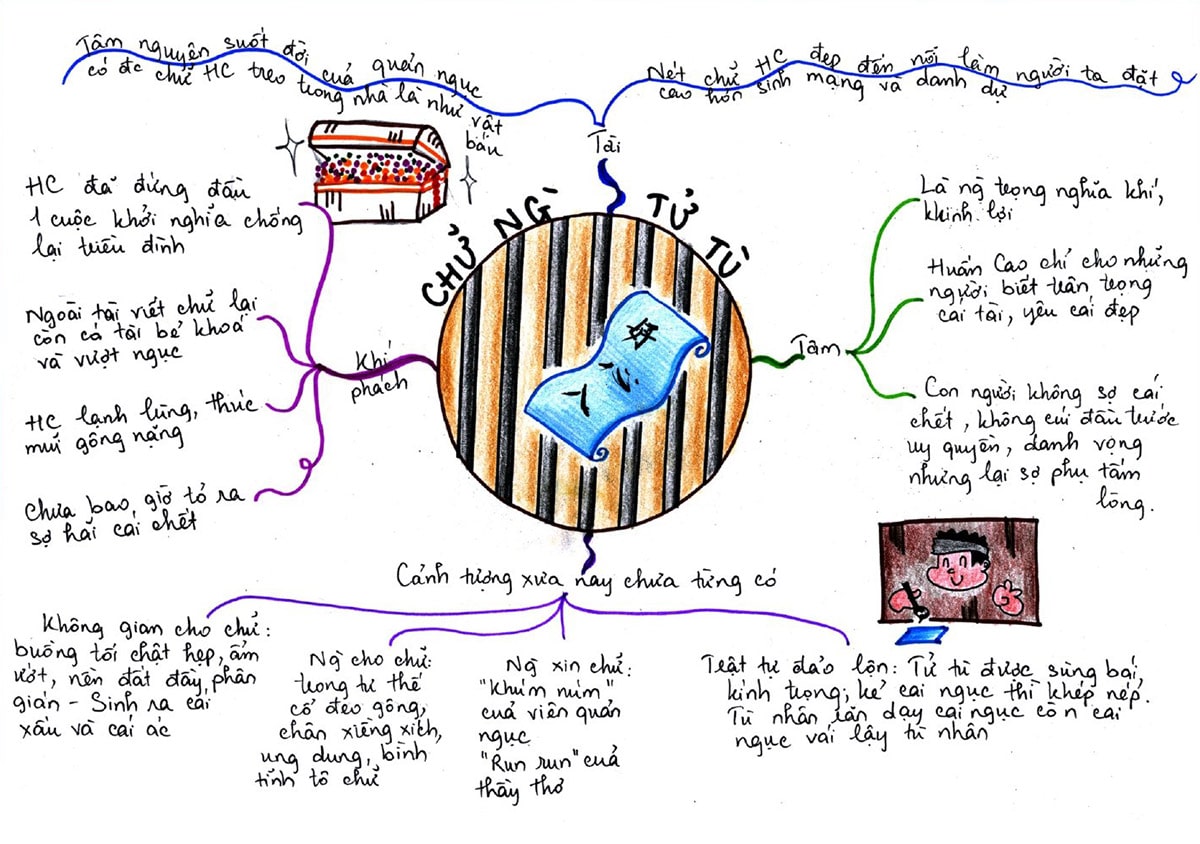 Tâm nguyện suốt đời của quản ngục
có đc chữ HC treo trong nhà là như vật
báu
Nét chữ HC đẹp đến nỗi làm người ta đặt
cao hơn sinh mạng và danh dự
Tài
CHỮ NG TỬ TÙ
HC đã đứng đầu
1 cuộc khởi nghĩa chống
lại triều đình
Ngoài tài viết chữ lại
còn cả tài bẻ khoá
và vượt ngục
HC lạnh lùng, thúc
mũi gông nặng
Chưa bao giờ tỏ ra
sợ hãi cái chết
Khí
phách
Là ng trọng nghĩa khí,
khinh lợi
Huấn Cao chỉ cho những
người biết trân trọng
cái tài, yêu cái đẹp
Tâm
Con người không sợ cái
chết, không cúi đầu trước
uy quyền, danh vọng
nhưng lại sợ phụ tấm
lòng.
Cảnh tượng xưa nay chưa từng có
Không gian cho chữ:
buồng tối chật hẹp, ẩm
ướt, nền đất đầy phân
gián - Sinh ra cái
xấu và cái ác
Ng cho chữ:
trong tư thế
cổ đeo gông,
chân xiềng xích,
ung dung, bình
tĩnh tô chữ
Ng xin chữ:
"Khúm núm"
của viên quản
ngục
"Run run" của
thầy thơ
Trật tự đảo lộn: Tử tù được sùng bái,
kính trọng; kẻ cai ngục thì khép nép.
Tù nhân răn dạy cai ngục còn cai
ngục vái lậy tù nhân